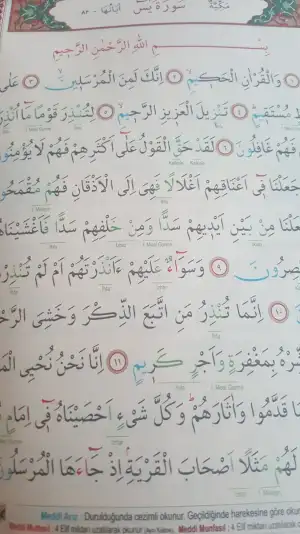 مكية سورة يس آياتها ٨٣
بِسْمِ اللّٰهِ الرَّحْمٰنِ الرَّحِيمِ
وَالْقُرْاٰنِ الْحَكِيمِ ٢ اِنَّكَ لَمِنَ الْمُرْسَلِينَ ٣ عَلٰى
مُسْتَقِيمٍ ٤ تَنْزِيلَ الْعَزِيزِ الرَّحِيمِ ٥ لِتُنْذِرَ قَوْمًا مَٓا اُنْذِرَ
فَهُمْ غَافِلُونَ ٦ لَقَدْ حَقَّ الْقَوْلُ عَلٰٓى اَكْثَرِهِمْ فَهُمْ لَا يُؤْمِنُونَ
جَعَلْنَا فِٓى اَعْنَاقِهِمْ اَغْلَالًا فَهِىَ اِلَى الْاَذْقَانِ فَهُمْ مُقْمَحُونَ
جَعَلْنَا مِنْ بَيْنِ اَيْدِيهِمْ سَدًّا وَمِنْ خَلْفِهِمْ سَدًّا فَاَغْشَيْنَاهُمْ
يُبْصِرُونَ ٩ وَسَوَٓاءٌ عَلَيْهِمْ ءَاَنْذَرْتَهُمْ اَمْ لَمْ تُنْذِرْهُمْ
١٠ اِنَّمَا تُنْذِرُ مَنِ اتَّبَعَ الذِّكْرَ وَخَشِىَ الرَّحْمٰنَ
فَبَشِّرْهُ بِمَغْفِرَةٍ وَاَجْرٍ كَرِيمٍ ١١ اِنَّا نَحْنُ نُحْىِ الْمَوْتٰى
مَا قَدَّمُوا وَاٰثَارَهُمْ وَكُلَّ شَىْءٍ اَحْصَيْنَاهُ فِٓى اِمَامٍ
لَهُمْ مَثَلًا اَصْحَابَ الْقَرْيَةِ اِذْ جَٓاءَهَا الْمُرْسَلُونَ
Meddi Arız : Durulduğunda cezimli okunur. Geçildiğinde harekesine göre okunur
Meddi Muttasıl : 4 Elif miktarı uzatılarak okunur Meddi Munfasıl : 4 Elif miktarı uzatılarak